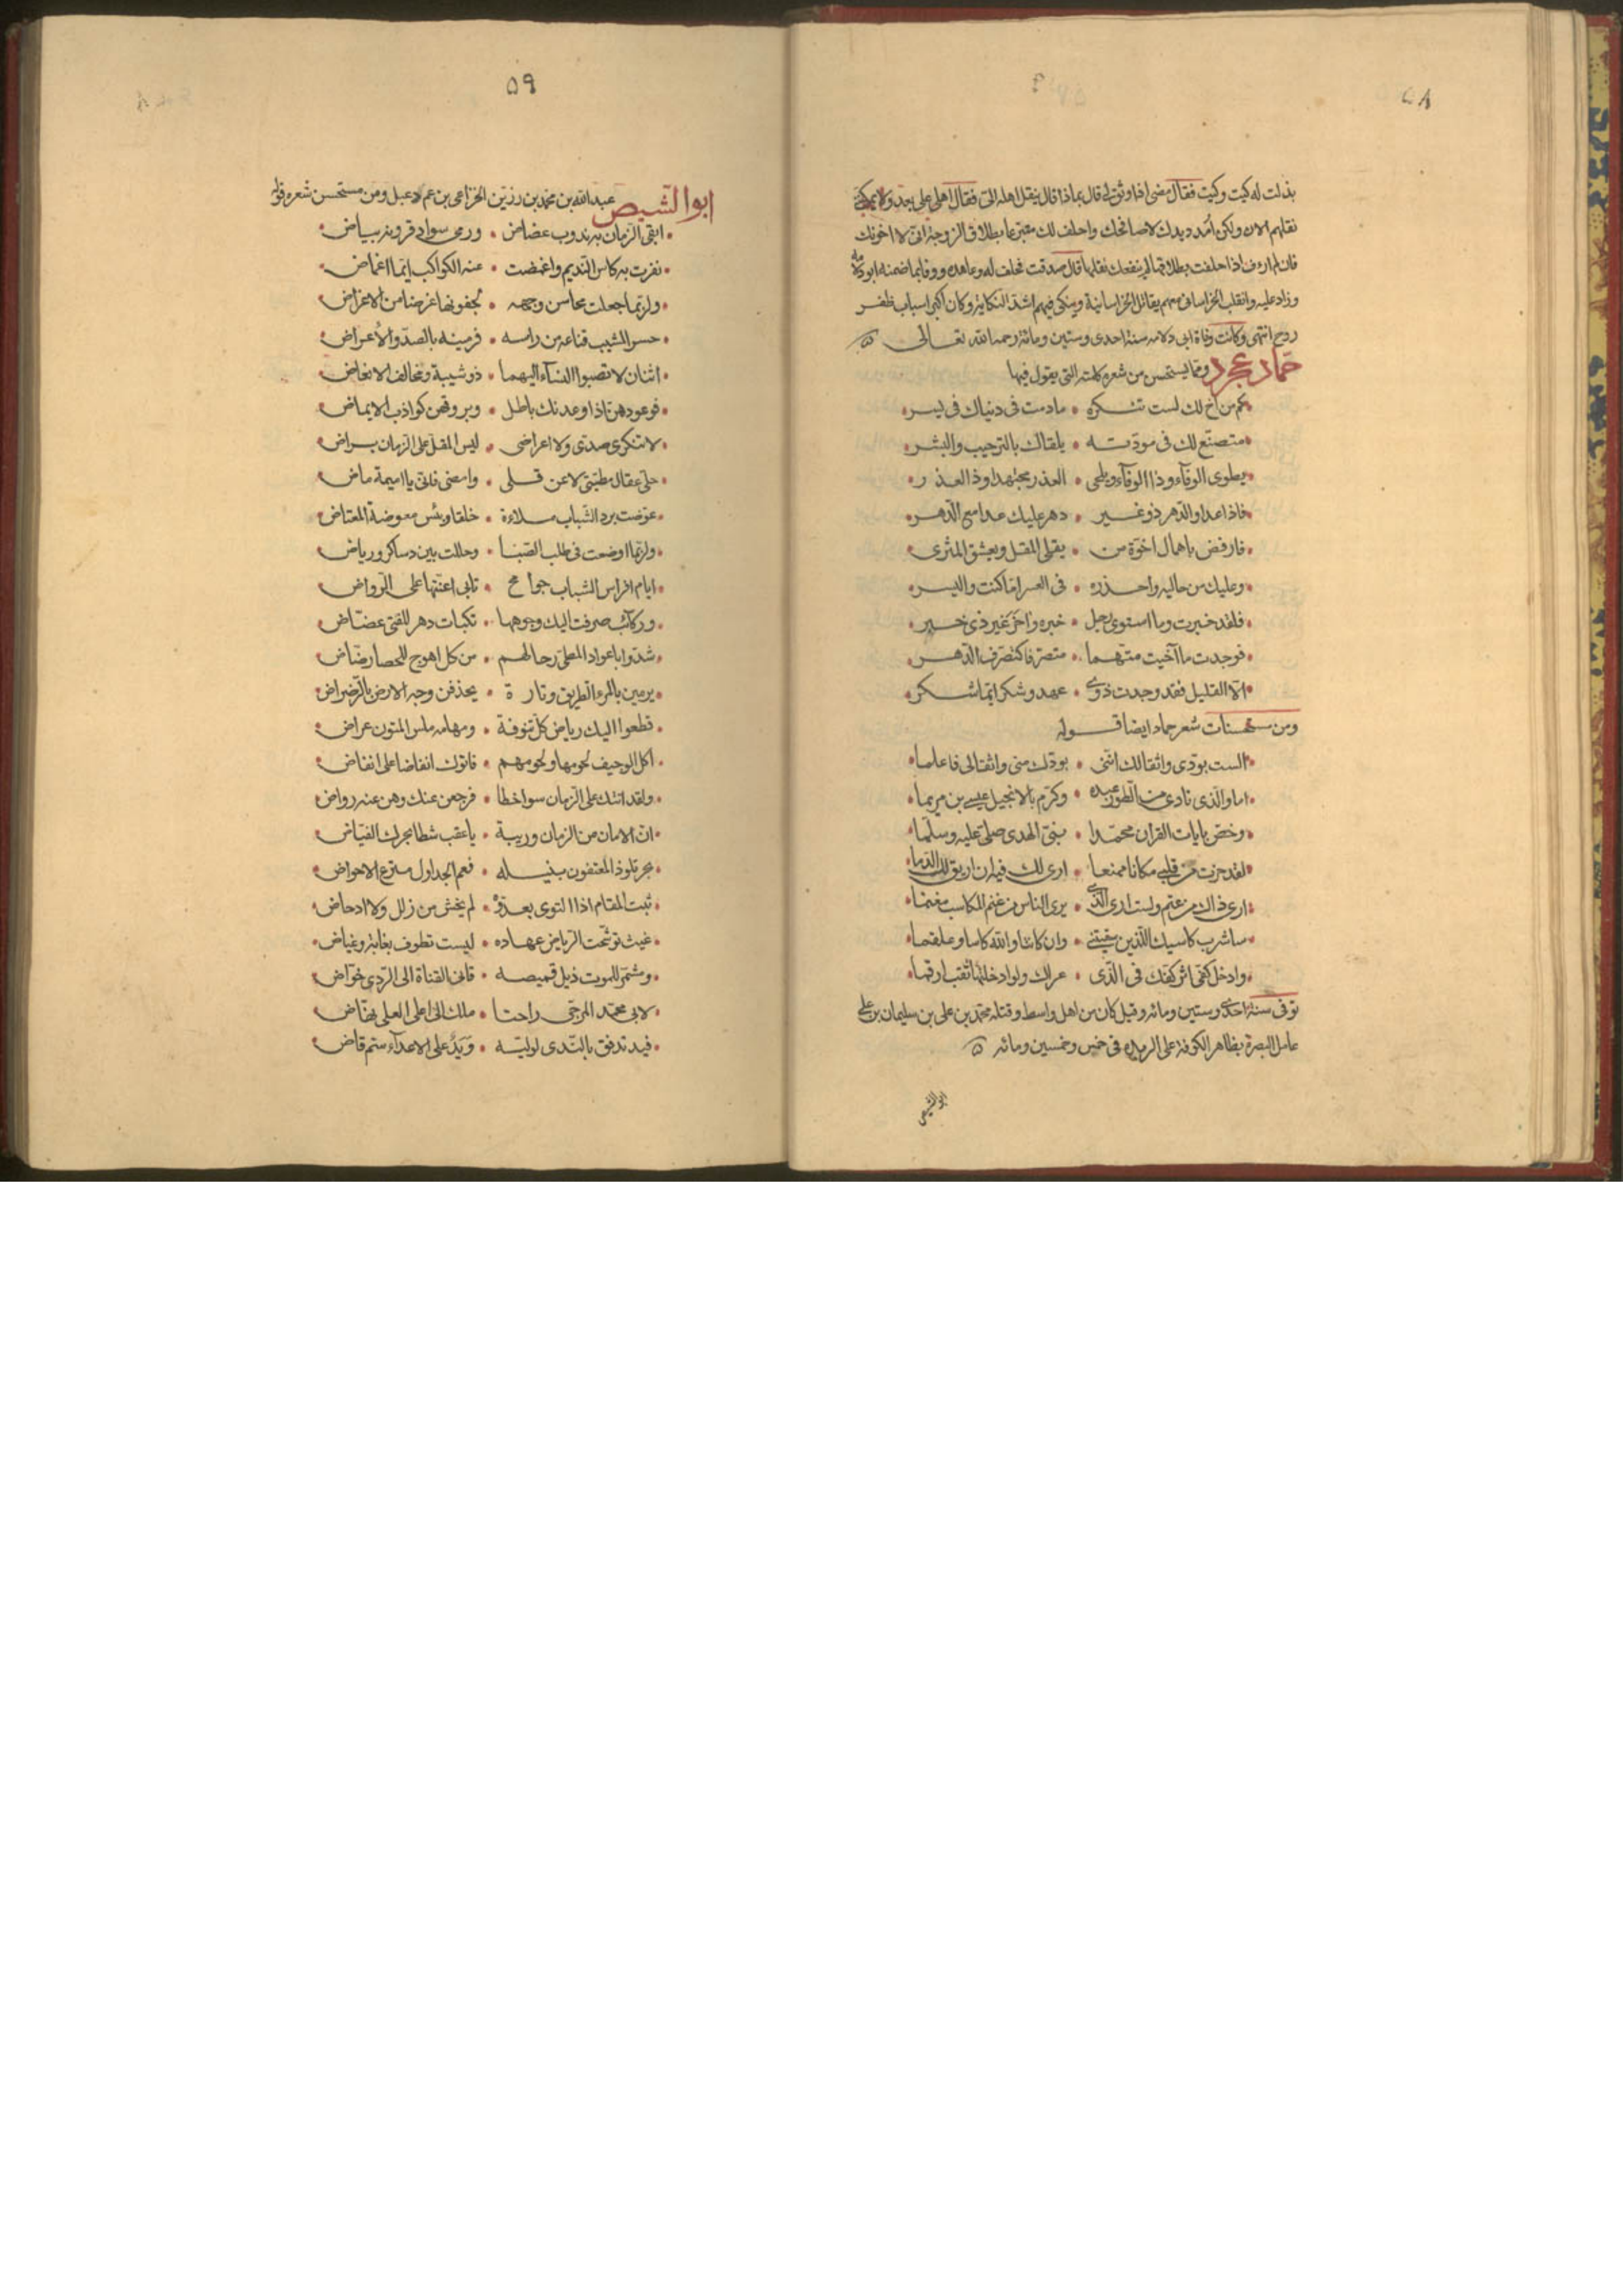 ٥٨
بذلت له كيت وكيت فقال مضى اذا وثق لى قال بماذا قال بنقل اهله الى فقال اهلى على بعد ولا يمكننى
نقلهم الان ولكن امدد يدك لاصافحك واحلف لك متبرعا بطلاق الزوجة انى لا اخونك
فان لم اوف اذا حلفت بطلاقها لم ينفعك نقلها قال صدقت فحلف له وعاهده ووفا بما ضمنه ابو دلامه
وزاد عليه وانقلب الخراسانى معهم يقاتل الخراسانية وينكى فيهم اشد النكاية وكان اكبر اسباب ظفر
روح انتهى وكانت وفاة ابى دلامه سنة احدى وستين ومائة رحمه الله تعالى
حماد عجرد ومما يستحسن من شعره كلمته التى يقول فيها
كم من اخ لك لست تنكره • مادمت فى دنياك فى يسر
متصنع لك فى مودته • يلقاك بالترحيب والبشر
يطوى الوفآء وذا الوفآء ويلحى • الغدر مجتهدا وذا الغدر
فاذا عدا والدهر ذو غير • دهر عليك عدا مع الدهر
فارفض باهمال اخوة من • يقلى المقل ويعشق المثرى
وعليك من حاليه واحذره • فى العسر اما كنت واليسر
فلقد خبرت وما استوى رجل • خبره واخر غير ذى خبر
فوجدت ما آخيت متهما • متصرفا كتصرف الدهر
الا القليل فقد وجدت ذوى • عهد وشكر انما شكر
ومن مستحسنات شعر حماد ايضا قوله
الست بودى واثقا لك اننى • بودك منى واثقا لى فاعلما
اما والذى نادى من الطور عبده • وكرم بالانجيل عيسى بن مريما
وخص بايات القران محمدا • بنى الهدى صلى عليه وسلما
لقد حزت من قلبى مكانا ممنعا • ارى لك فيه ان اريق لك الدما
ارى ذاك من غنم ولست ارى الذى • يرى الناس من غنم المكاسب مغنما
ساشرب كاسيك اللذين سقيتنى • وان كانتا والله كاسا وعلقما
وادخل كفى اثر كفك فى الذى • عراك ولو ادخلتها ثقب ارقما
توفى سنة احدى وستين ومائه وقيل كان من اهل واسط وقتله محمد بن على بن سليمان بن على
عامل البصرة بظاهر الكوفة على الزندقه فى خمس وخمسين ومائه
ابو الشيص
٥٩
ابو الشيص عبد الله بن محمد بن رزين الخزاعى بن عم دعبل ومن مستحسن شعره قوله
ابقى الزمان به ندوب عضاض • ورمى سواد قرونه ببياض
نفرت به كاس النديم واغمضت • عنه الكواكب ايما اغماض
ولربما جعلت محاسن وجهه • لجفونها غرضا من الاغراض
حسر المشيب قناعه عن راسه • فرمينه بالصد والاعراض
اثنان لا تصبوا النسآء اليهما • ذو شيبة ومحالف الانفاض
فوعودهن اذا وعدنك باطل • وبروقهن كواذب الايماض
لا تنكرى صدى ولا اعراضى • ليس المقل على الزمان براض
حلى عقال مطيتى لا عن قلى • وامضى فانى يا اميمة ماض
عوضت برد الشباب ملاءة • خلقا وبئس معوضة المعتاض
ولربما اوضعت فى طلب الصبا • وحللت بين دساكر ورياض
ايام افراس الشباب جوامح • تابى اعنتها على الرواض
وركآئب صرفت اليك وجوهها • نكبات دهر للفتى عضاض
شدوا باعواد المطى رحالهم • من كل اهوج للحصا رضاض
يرمين بالمرء الطريق وتارة • يحذفن وجه الارض بالرضراض
قطعوا اليك رياض كل تنوفة • ومهامه ملس المتون عراض
اكل الوجيف لحومها ولحومهم • فاتوك انقاضا على انقاض
ولقد اتتك على الزمان سواخطا • فرجعن عنك وهن عنه رواض
ان الامان من الزمان وريبة • يا عقب شطا بحرك الفياض
بحر تلوذ المعتفون بنيله • فعم الجداول مترع الاحواض
ثبت المقام اذا التوى بعدوه • لم يخش من زلل ولا ادحاض
غيث توشحت الرياض عهاده • ليست تطوف بغابة وغياض
ومشمر للموت ذيل قميصه • قانى القناة الى الردى خواض
لابى محمد المرجى راحتا • ملك الى اعلى العلى نهاض
فيد تدفق بالندى لوليه • ويد على الاعدآء ستم قاض